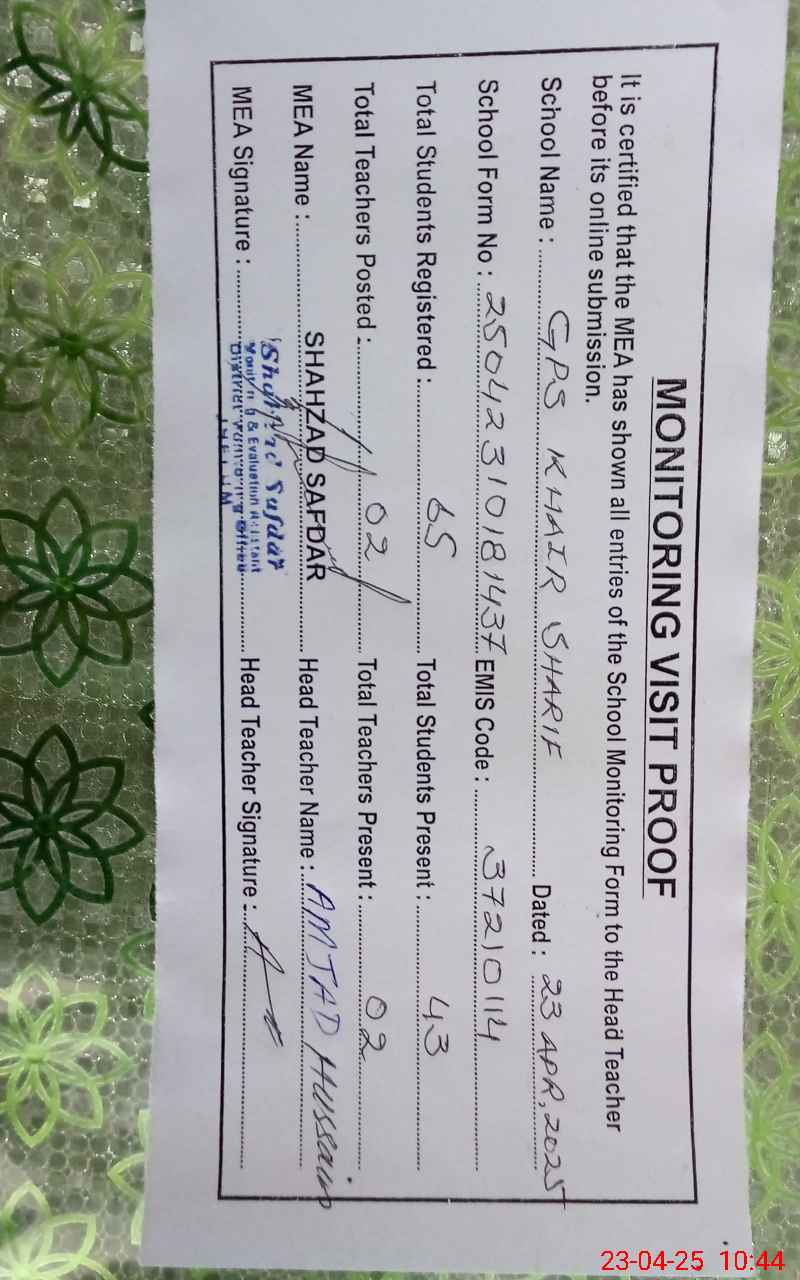 MONITORING VISIT PROOF
It is certified that the MEA has shown all entries of the School Monitoring Form to the Head Teacher
before its online submission.
School Name : GPS KHAIR SHARIF Dated : 23 APR, 2025
School Form No : 25042310181437 EMIS Code : 37210114
Total Students Registered : 65 Total Students Present : 43
Total Teachers Posted : 02 Total Teachers Present : 02
MEA Name : SHAHZAD SAFDAR Head Teacher Name : AMJAD Hussain
MEA Signature : Head Teacher Signature :
Shahzad Safdar
Monitoring & Evaluation Assistant
District Monitoring Office
23-04-25 10:44